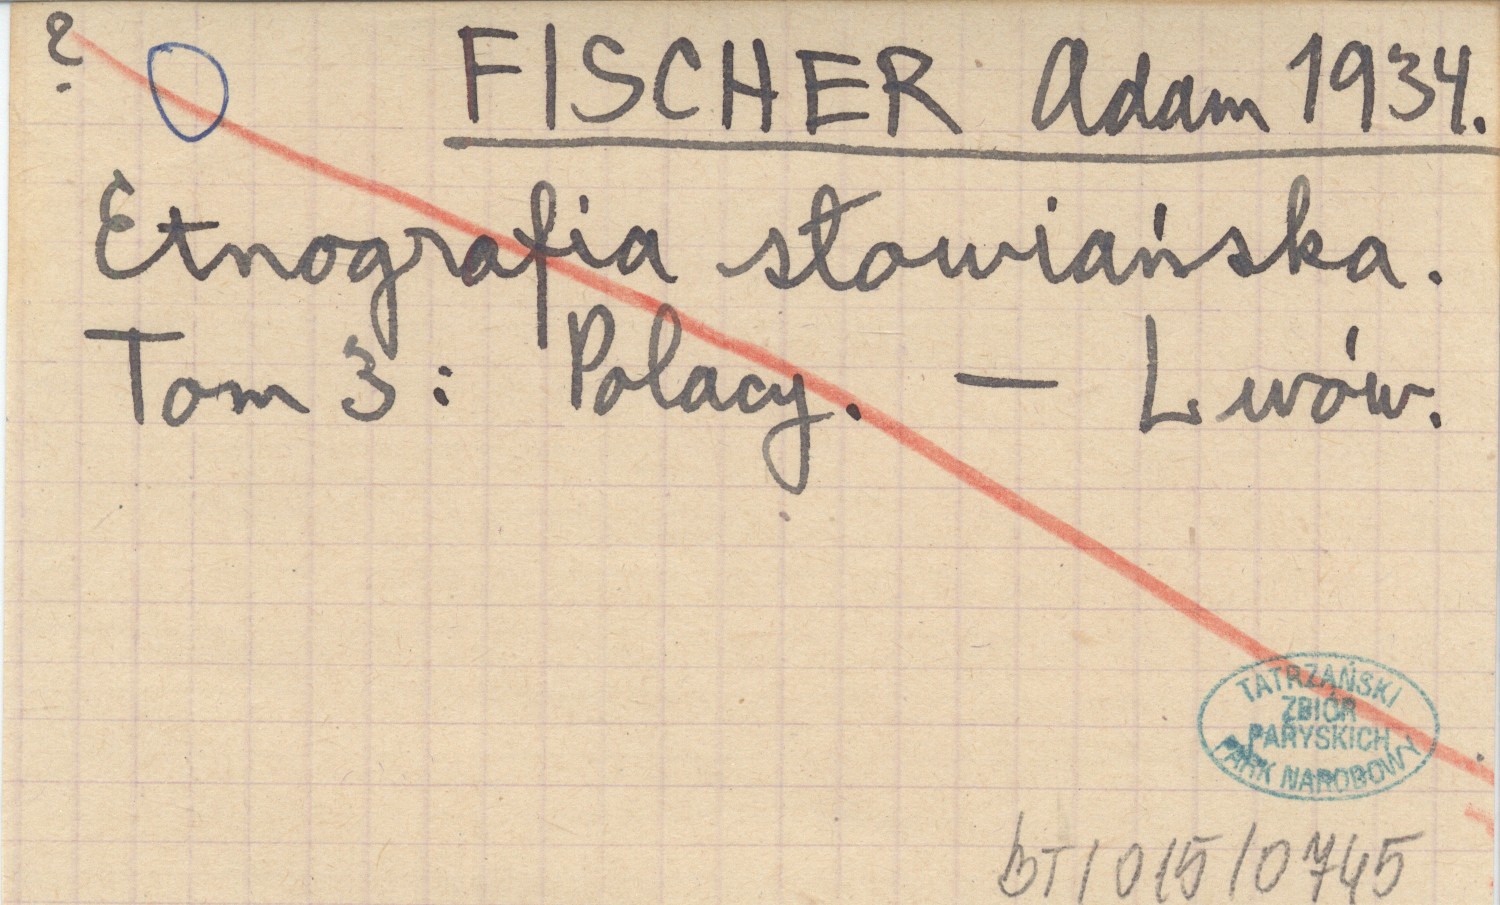 ?
FISCHER Adam 1934.
Etnografia słowiańska.
Tom 3: Polacy. — Lwów.
TATRZAŃSKI
ZBIÓR
PARYSKICH
PARK NARODOWY
bT/015/0745